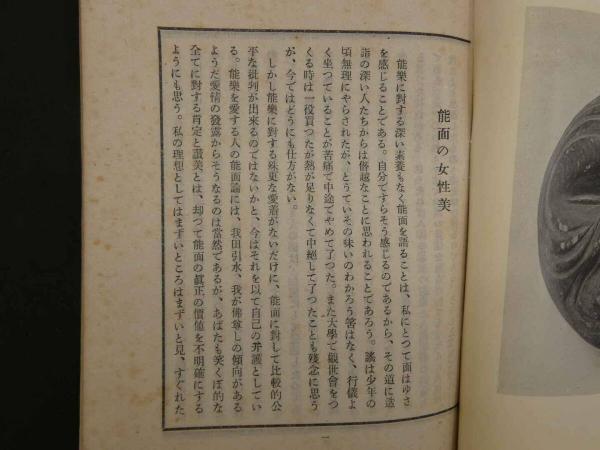 能面の女性美
能樂に對する深い素養もなく能面を語ることは、私にとつて面はゆさ
を感じることである。自分ですらそう感じるのであるから、その道に造
詣の深い人たちからは僭越なことに思われることであろう。謠は少年の
頃無理にやらされたが、とうていその味いのわかろう筈はなく、行儀よ
く坐つていることが苦痛で中途でやめて了つた。また大學で觀世會をつ
くる時は一役買つたが熱が足りなくて中絕して了つたことも殘念に思う
が、今ではどうにも仕方がない。
しかし能樂に對する殊更な愛着がないだけに、能面に對して比較的公
平な批判が出來るのではないかと、今はそれを以て自己の弁護としてい
る。能樂を愛する人の能面論には、我田引水、我が佛尊しの傾向がある
ようだ愛情の發露からそうなるのは當然であるが、あばたも笑くぼ的な
全てに對する肯定と讚美とは、却つて能面の眞正の價値を不明確にする
ようにも思う。私の理想としてはまずいところはまずいと見、すぐれた
一